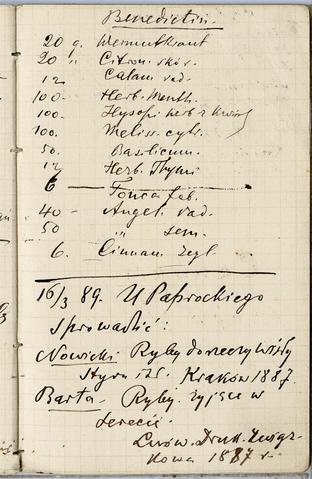 Benedictin.
20 g. Wermutkraut
20 " Citron. skór.
12 Calam. rad.
100.- Herb. Menth.
100.- Hysopi herb z kwiat
100.- Meliss. cytr.
50. Basilicum.
12 Herb. Thymi
6 Tonca fab.
40 - Angel. rad.
50 " sem.
6. Cinnam. zeyl.
16/3 89. U Paprockiego
sprowadzić:
Nowicki Ryby dorzeczy Wisły
Styru Kraków 1887.
Barta - Ryby. żyjące w
Lwów. Druk. Związ-
kowa 1887 r.